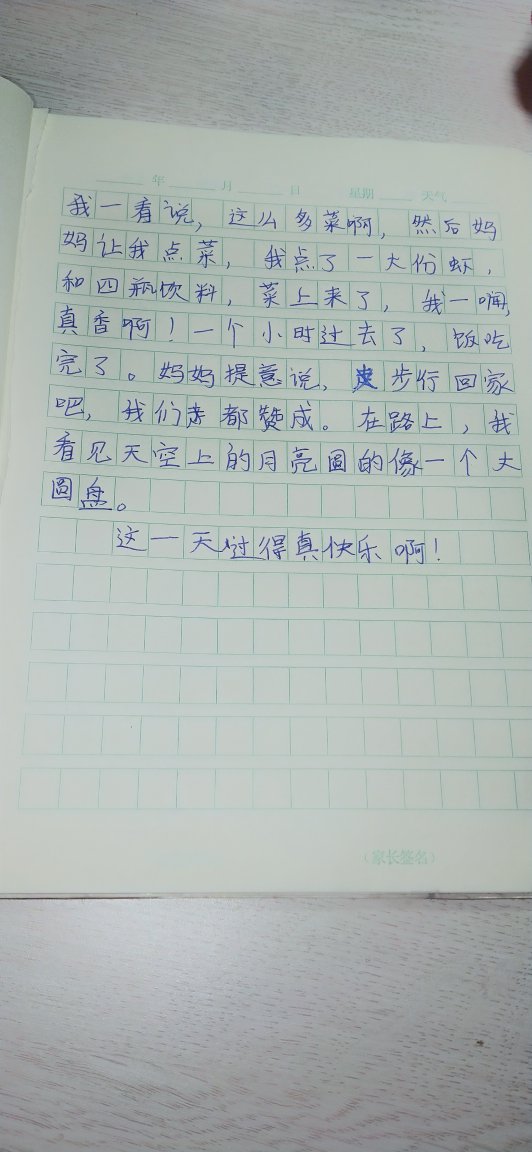 年 月 日 星期 天气
我一看说，这么多菜啊，然后妈
妈让我点菜，我点了一大份虾，
和四瓶饮料，菜上来了，我一闻，
真香啊！一个小时过去了，饭吃
完了。妈妈提意说，步行回家
吧，我们都赞成。在路上，我
看见天空上的月亮圆的像一个大
圆盘。
这一天过得真快乐啊！
（家长签名）